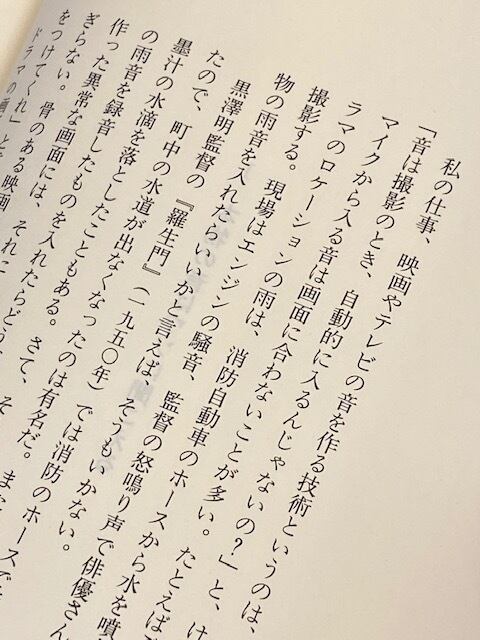 私の仕事、映画やテレビの音を作る技術というのは、
「音は撮影のとき、自動的に入るんじゃないの?」と、け
マイクから入る音は画面に合わないことが多い。たとえば
ラマのロケーションの雨は、消防自動車のホースから水を噴
撮影する。現場はエンジンの騒音、監督の怒鳴り声で俳優さん
物の雨音を入れたらいいかと言えば、そうもいかない。
黒澤明監督の『羅生門』(一九五〇年)では消防のホースで
たので、町中の水道が出なくなったのは有名だ。また
墨汁の水滴を落としたものを入れたらどう
の雨音を録音したこともある。さて、そ
作った異常な画面には、それに
ぎらない。骨のある映画
をつけてくれ」と
ドラマの画